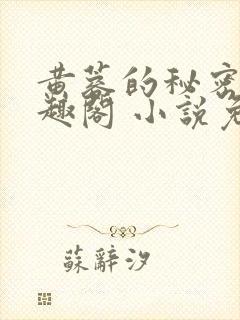 黄蓉的秘密
趣閣 小說免
蘇辭汐